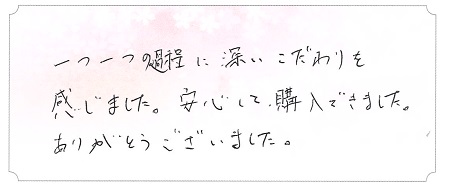 一つ一つの過程に深いこだわりを
感じました。安心して購入できました。
ありがとうございました。